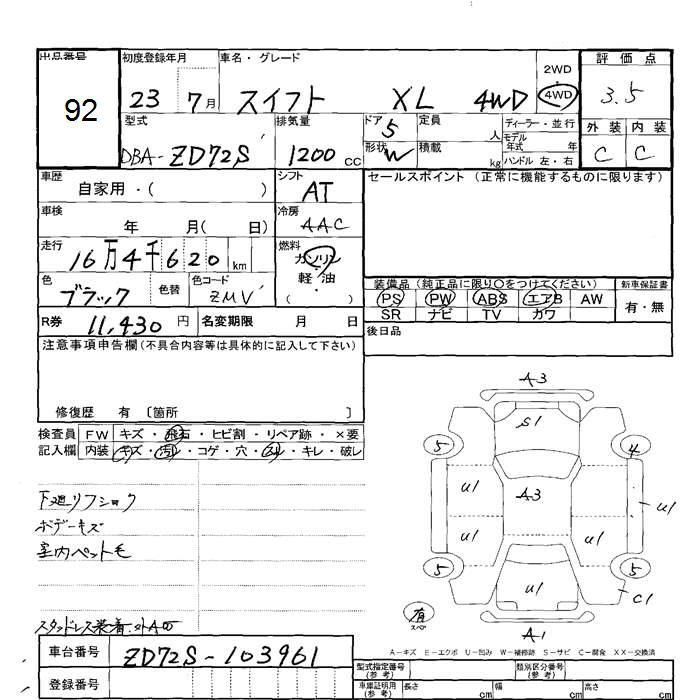 出品番号 初度登録年月 車名・グレード 評価点
92 23 7月 スイフト XL 4WD 2WD 4WD 3.5
型式 排気量 ドア 定員 ディーラー・並行 外装 内装
DBA-ZD72S 1200cc 5 人 モデル年式 年
形状 W 積載 kg ハンドル 左・右 C C
車歴 自家用・( ) シフト AT セールスポイント (正常に機能するものに限ります)
車検 年 月( 日) 冷房 AAC
走行 16万4千620km 燃料 ガソリン 軽・油 ( )
色 ブラック 色替 色コード ZMV
装備品 (純正品に限り○をつけてください) 新車保証書
PS PW ABS エアB AW 有・無
SR ナビ TV カワ
R券 11,430円 名変期限 月 日
後日品
注意事項申告欄 (不具合内容等は具体的に記入して下さい)
修復歴 有 〔箇所 〕
検査員記入欄 FW キズ・飛石・ヒビ割・リペア跡・×要
内装 キズ・汚れ・コゲ・穴・スレ・キレ・破レ
ボデーキズ
室内ペット毛
A3
S1
5 4
U1 A3 U1
U1 U1
5 U1 5
C1
有
スペア
A1
A-キズ E-エクボ U-凹み W-補修跡 S-サビ C-腐食 XX-交換済
車台番号 ZD72S-103961
登録番号
型式指定番号 (参考) 類別区分番号 (参考)
車庫証明用 (参考) 長さ cm 幅 cm 高さ cm